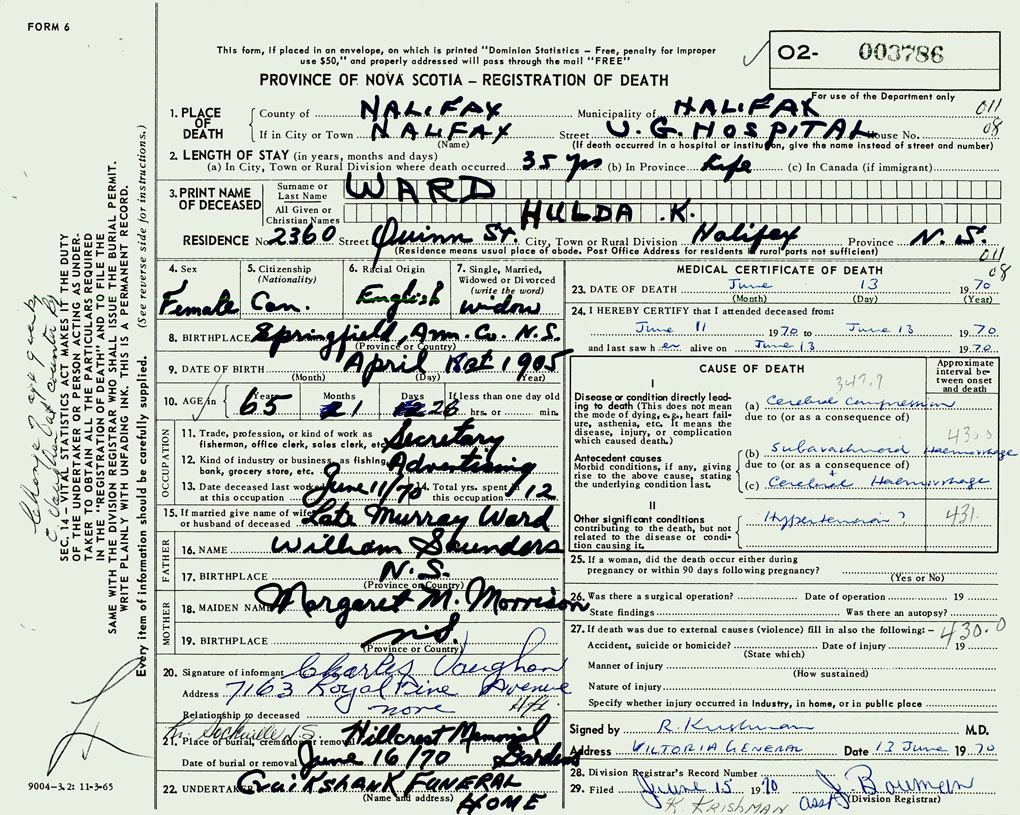 FORM 6
This form, if placed in an envelope, on which is printed "Dominion Statistics – Free, penalty for improper
use $50," and properly addressed will pass through the mail "FREE"
PROVINCE OF NOVA SCOTIA – REGISTRATION OF DEATH
O2- 003786
For use of the Department only
011
08
1. PLACE OF DEATH
County of HALIFAX Municipality of HALIFAX
If in City or Town HALIFAX Street V.G. HOSPITAL House No.
(Name) (If death occurred in a hospital or institution, give the name instead of street and number)
2. LENGTH OF STAY (in years, months and days)
(a) In City, Town or Rural Division where death occurred 35 yrs (b) In Province Life (c) In Canada (if immigrant)
3. PRINT NAME OF DECEASED
Surname or Last Name WARD
All Given or Christian Names HULDA K.
RESIDENCE No. 2360 Street Quinn St. City, Town or Rural Division Halifax Province N.S.
(Residence means usual place of abode. Post Office Address for residents in rural parts not sufficient)
011
08
4. Sex Female
5. Citizenship (Nationality) Can.
6. Racial Origin English
7. Single, Married, Widowed or Divorced (write the word) widow
8. BIRTHPLACE Springfield, Ann. Co. N.S.
(Province or Country)
9. DATE OF BIRTH April 1905
(Month) (Day) (Year)
10. AGE in Years 65 Months 1 Days 28 If less than one day old hrs. or min.
OCCUPATION
11. Trade, profession, or kind of work as fisherman, office clerk, sales clerk, etc. Secretary
12. Kind of industry or business, as fishing, bank, grocery store, etc. Advertising
13. Date deceased last worked at this occupation June 11/70 14. Total yrs. spent in this occupation 12
15. If married give name of wife or husband of deceased Late Murray Ward
FATHER
16. NAME William Saunders
17. BIRTHPLACE N.S.
(Province or Country)
MOTHER
18. MAIDEN NAME Margaret M. Morrison
19. BIRTHPLACE N.S.
(Province or Country)
20. Signature of informant Charles Vaughan
Address 7163 Royal Pine Avenue
Hfx.
Relationship to deceased none
Sackville N.S.
21. Place of burial, cremation or removal Hillcrest Memorial Gardens
Date of burial or removal June 16/70
22. UNDERTAKER Cruikshank FUNERAL HOME
(Name and address)
MEDICAL CERTIFICATE OF DEATH
23. DATE OF DEATH June 13 1970
(Month) (Day) (Year)
24. I HEREBY CERTIFY that I attended deceased from:
June 11 1970 to June 13 1970
and last saw her alive on June 13 1970
CAUSE OF DEATH
Approximate interval between onset and death
347.9
I
Disease or condition directly leading to death (This does not mean the mode of dying, e.g., heart failure, asthenia, etc. It means the disease, injury, or complication which caused death.)
(a) Cerebral Compression
due to (or as a consequence of)
430.0
Antecedent causes
Morbid conditions, if any, giving rise to the above cause, stating the underlying condition last.
(b) Subarachnoid Haemorrhage
due to (or as a consequence of)
+
(c) Cerebral Haemorrhage
II
Other significant conditions contributing to the death, but not related to the disease or condition causing it.
Hypertension?
431.
25. If a woman, did the death occur either during pregnancy or within 90 days following pregnancy?
(Yes or No)
26. Was there a surgical operation? Date of operation 19
State findings Was there an autopsy?
27. If death was due to external causes (violence) fill in also the following:–
430.0
Accident, suicide or homicide? Date of injury 19
(State which)
Manner of injury
(How sustained)
Nature of injury
Specify whether injury occurred in industry, in home, or in public place
Signed by R. Krishman M.D.
Address VICTORIA GENERAL Date 13 June 1970
28. Division Registrar's Record Number
29. Filed June 15 1970 asst J. Bowman
(Division Registrar)
K. KRISHMAN
SEC. 14 – VITAL STATISTICS ACT MAKES IT THE DUTY
OF THE UNDERTAKER OR PERSON ACTING AS UNDER-
TAKER TO OBTAIN ALL THE PARTICULARS REQUIRED
IN THE "REGISTRATION OF DEATH" AND TO FILE THE
SAME WITH THE DIVISION REGISTRAR WHO SHALL ISSUE THE BURIAL PERMIT.
WRITE PLAINLY WITH UNFADING INK. THIS IS A PERMANENT RECORD.
Every item of information should be carefully supplied. (See reverse side for instructions.)
Change of age given by
9004-3.2: 11-3-65